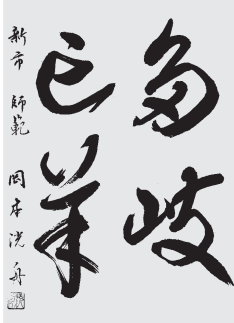 多岐
亡羊
新市 師範 岡本洸舟